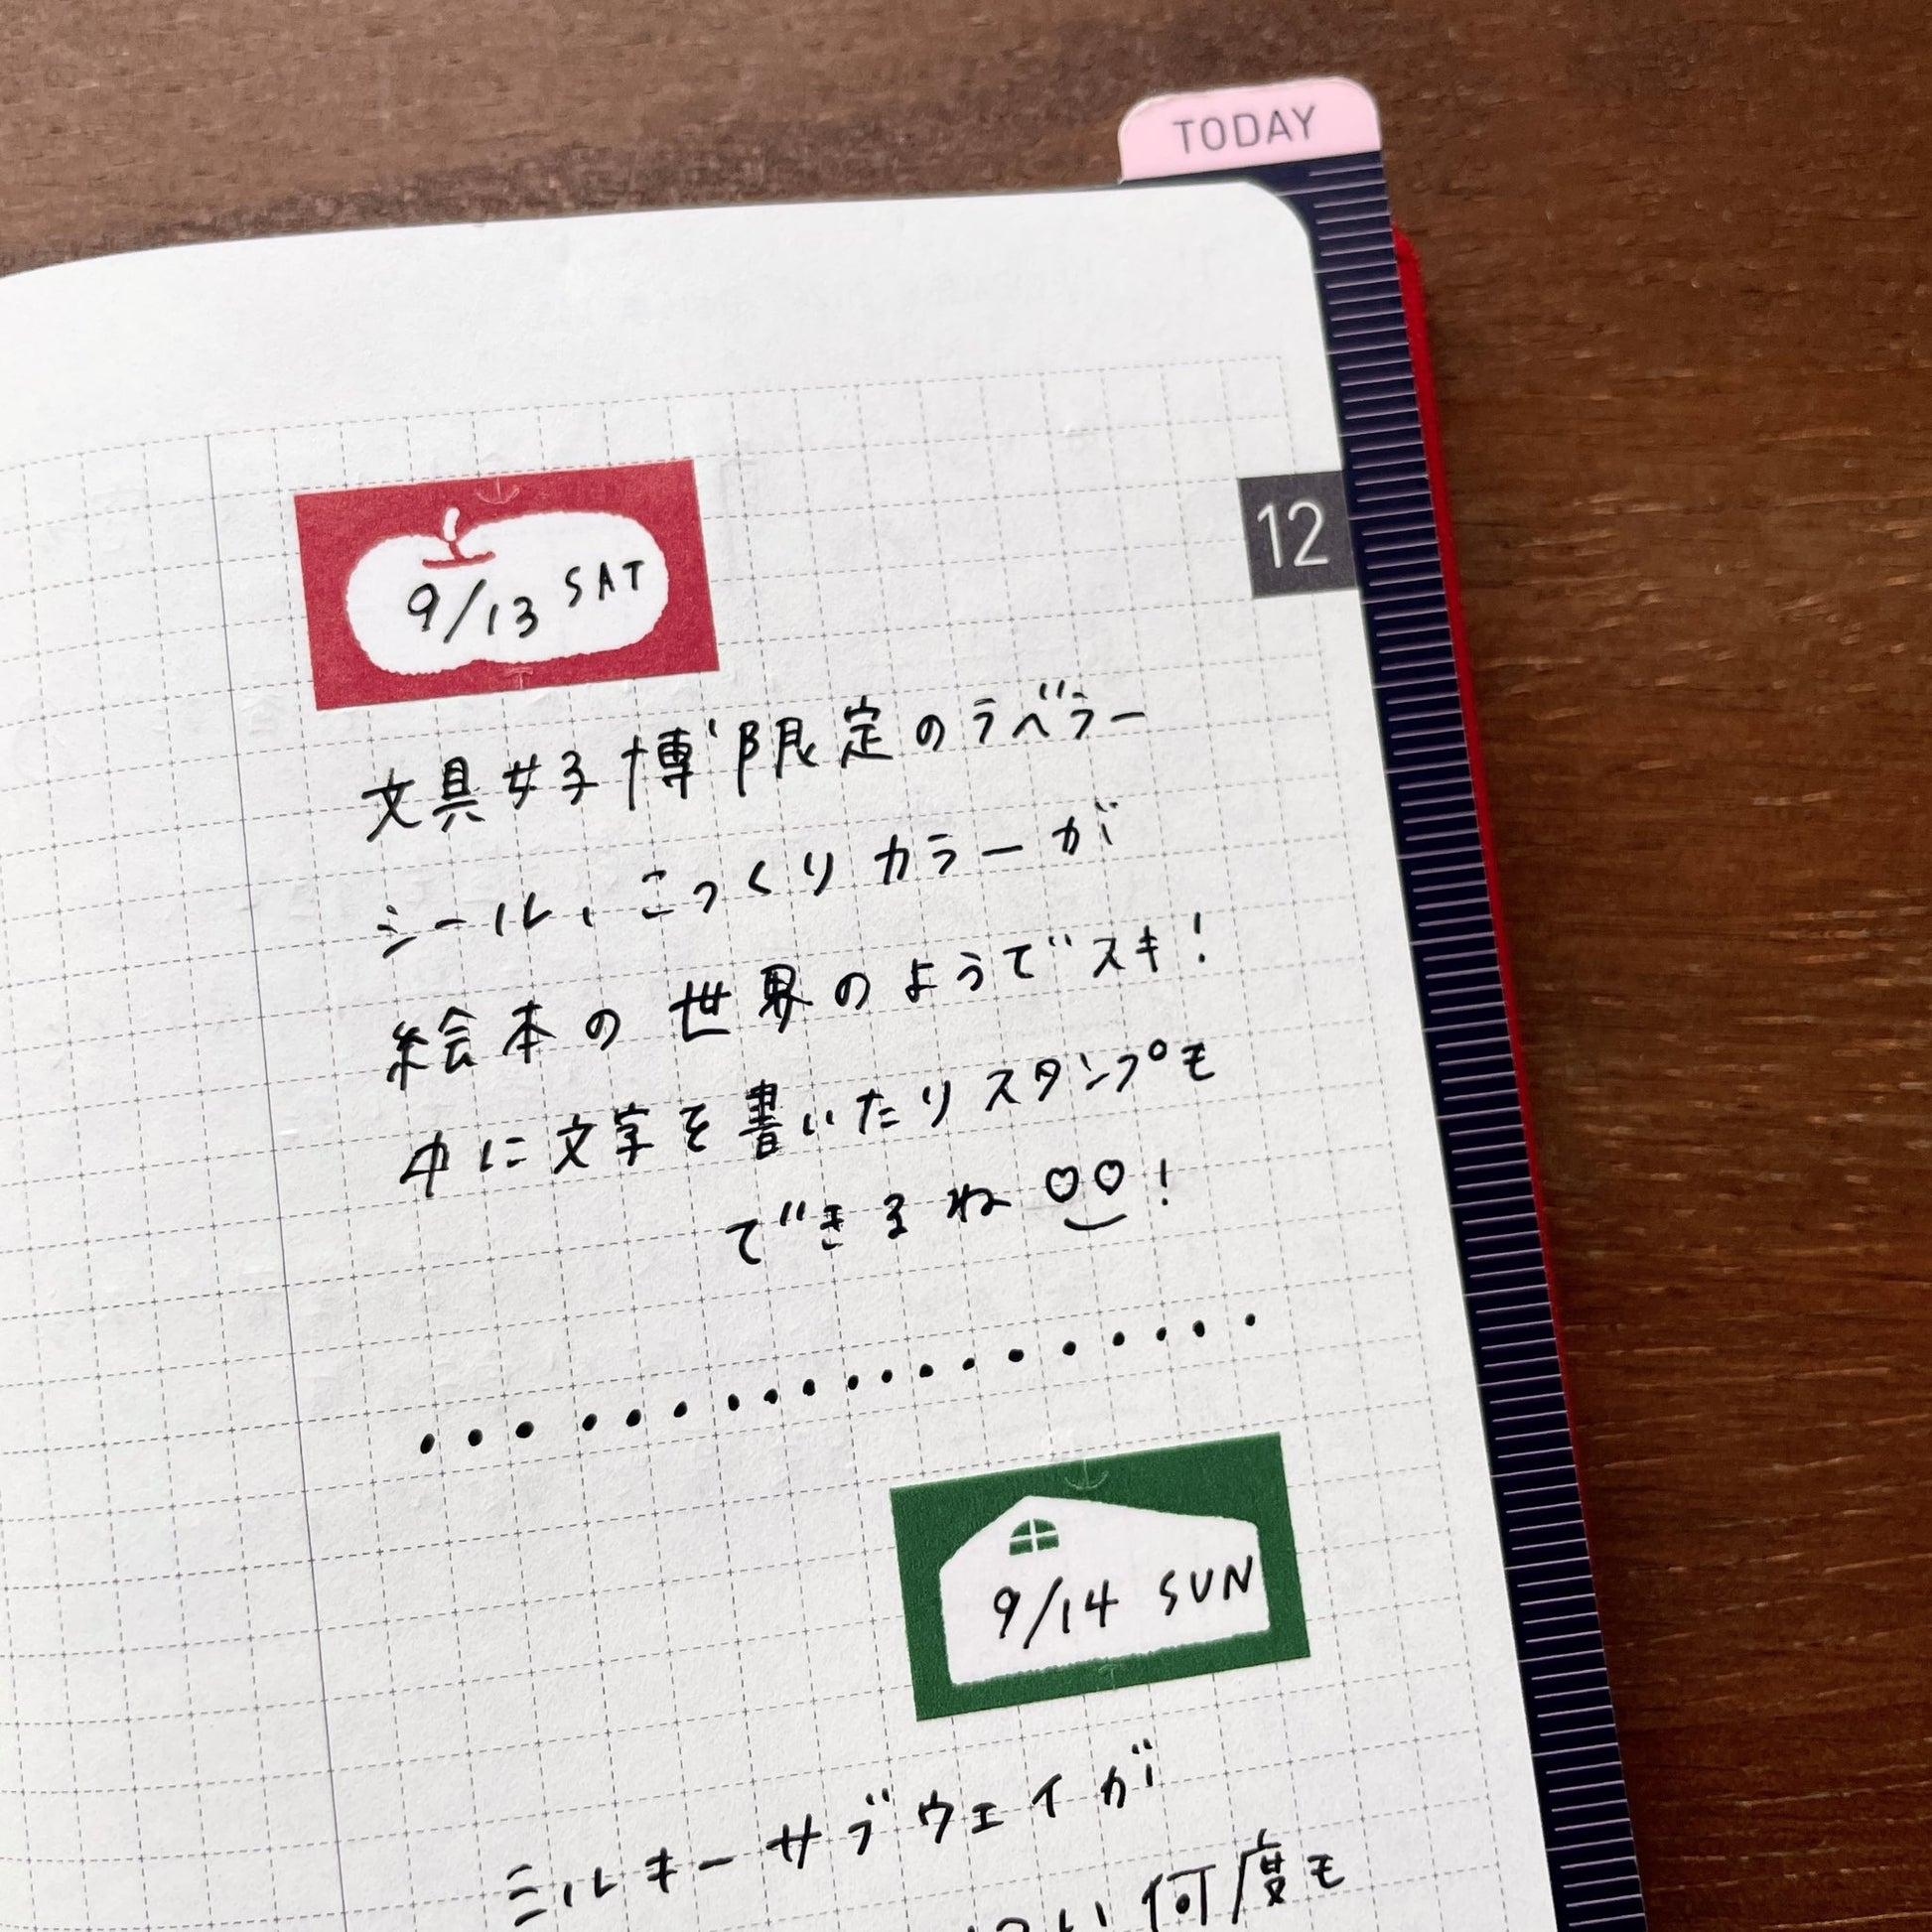 TODAY
12
9/13 SAT
文具女子博限定のラベラー
シール、こっくりカラーが
絵本の世界のようでスキ!
中に文字を書いたりスタンプも
できるね!
9/14 SUN
ミルキーサブウェイが
何度も